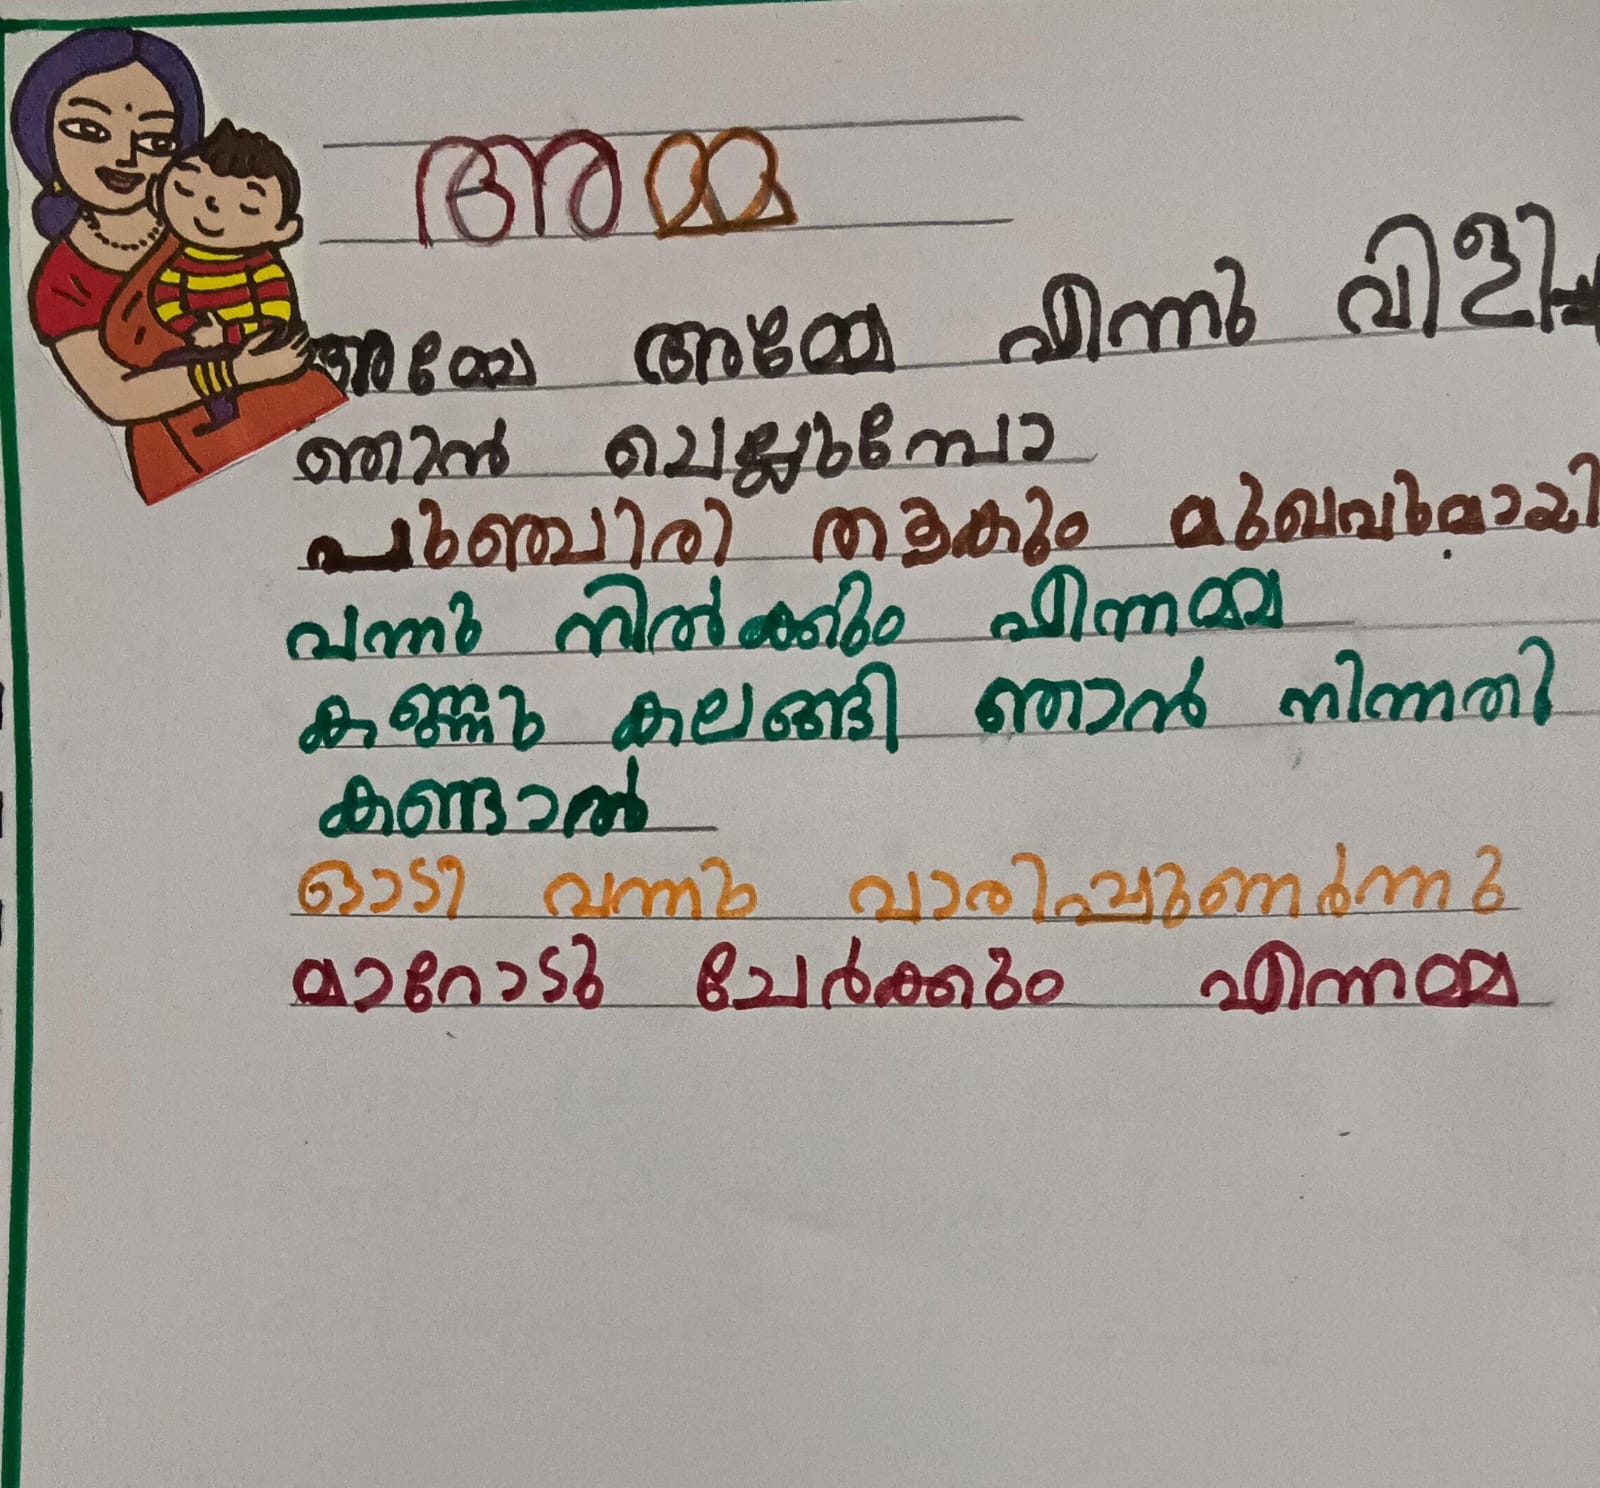 അമ്മ
അമ്മേ അമ്മേ എന്നു വിളിച്ച
ഞാൻ ചെല്ലുമ്പോ
പുഞ്ചിരി തൂകും മുഖവുമായി
വന്നു നിൽക്കും എന്നമ്മ
കണ്ണു കലങ്ങി ഞാൻ നിന്നതു
കണ്ടാൽ
ഓടി വന്നു വാരിപ്പുണർന്നു
മാറോടു ചേർക്കും എന്നമ്മ